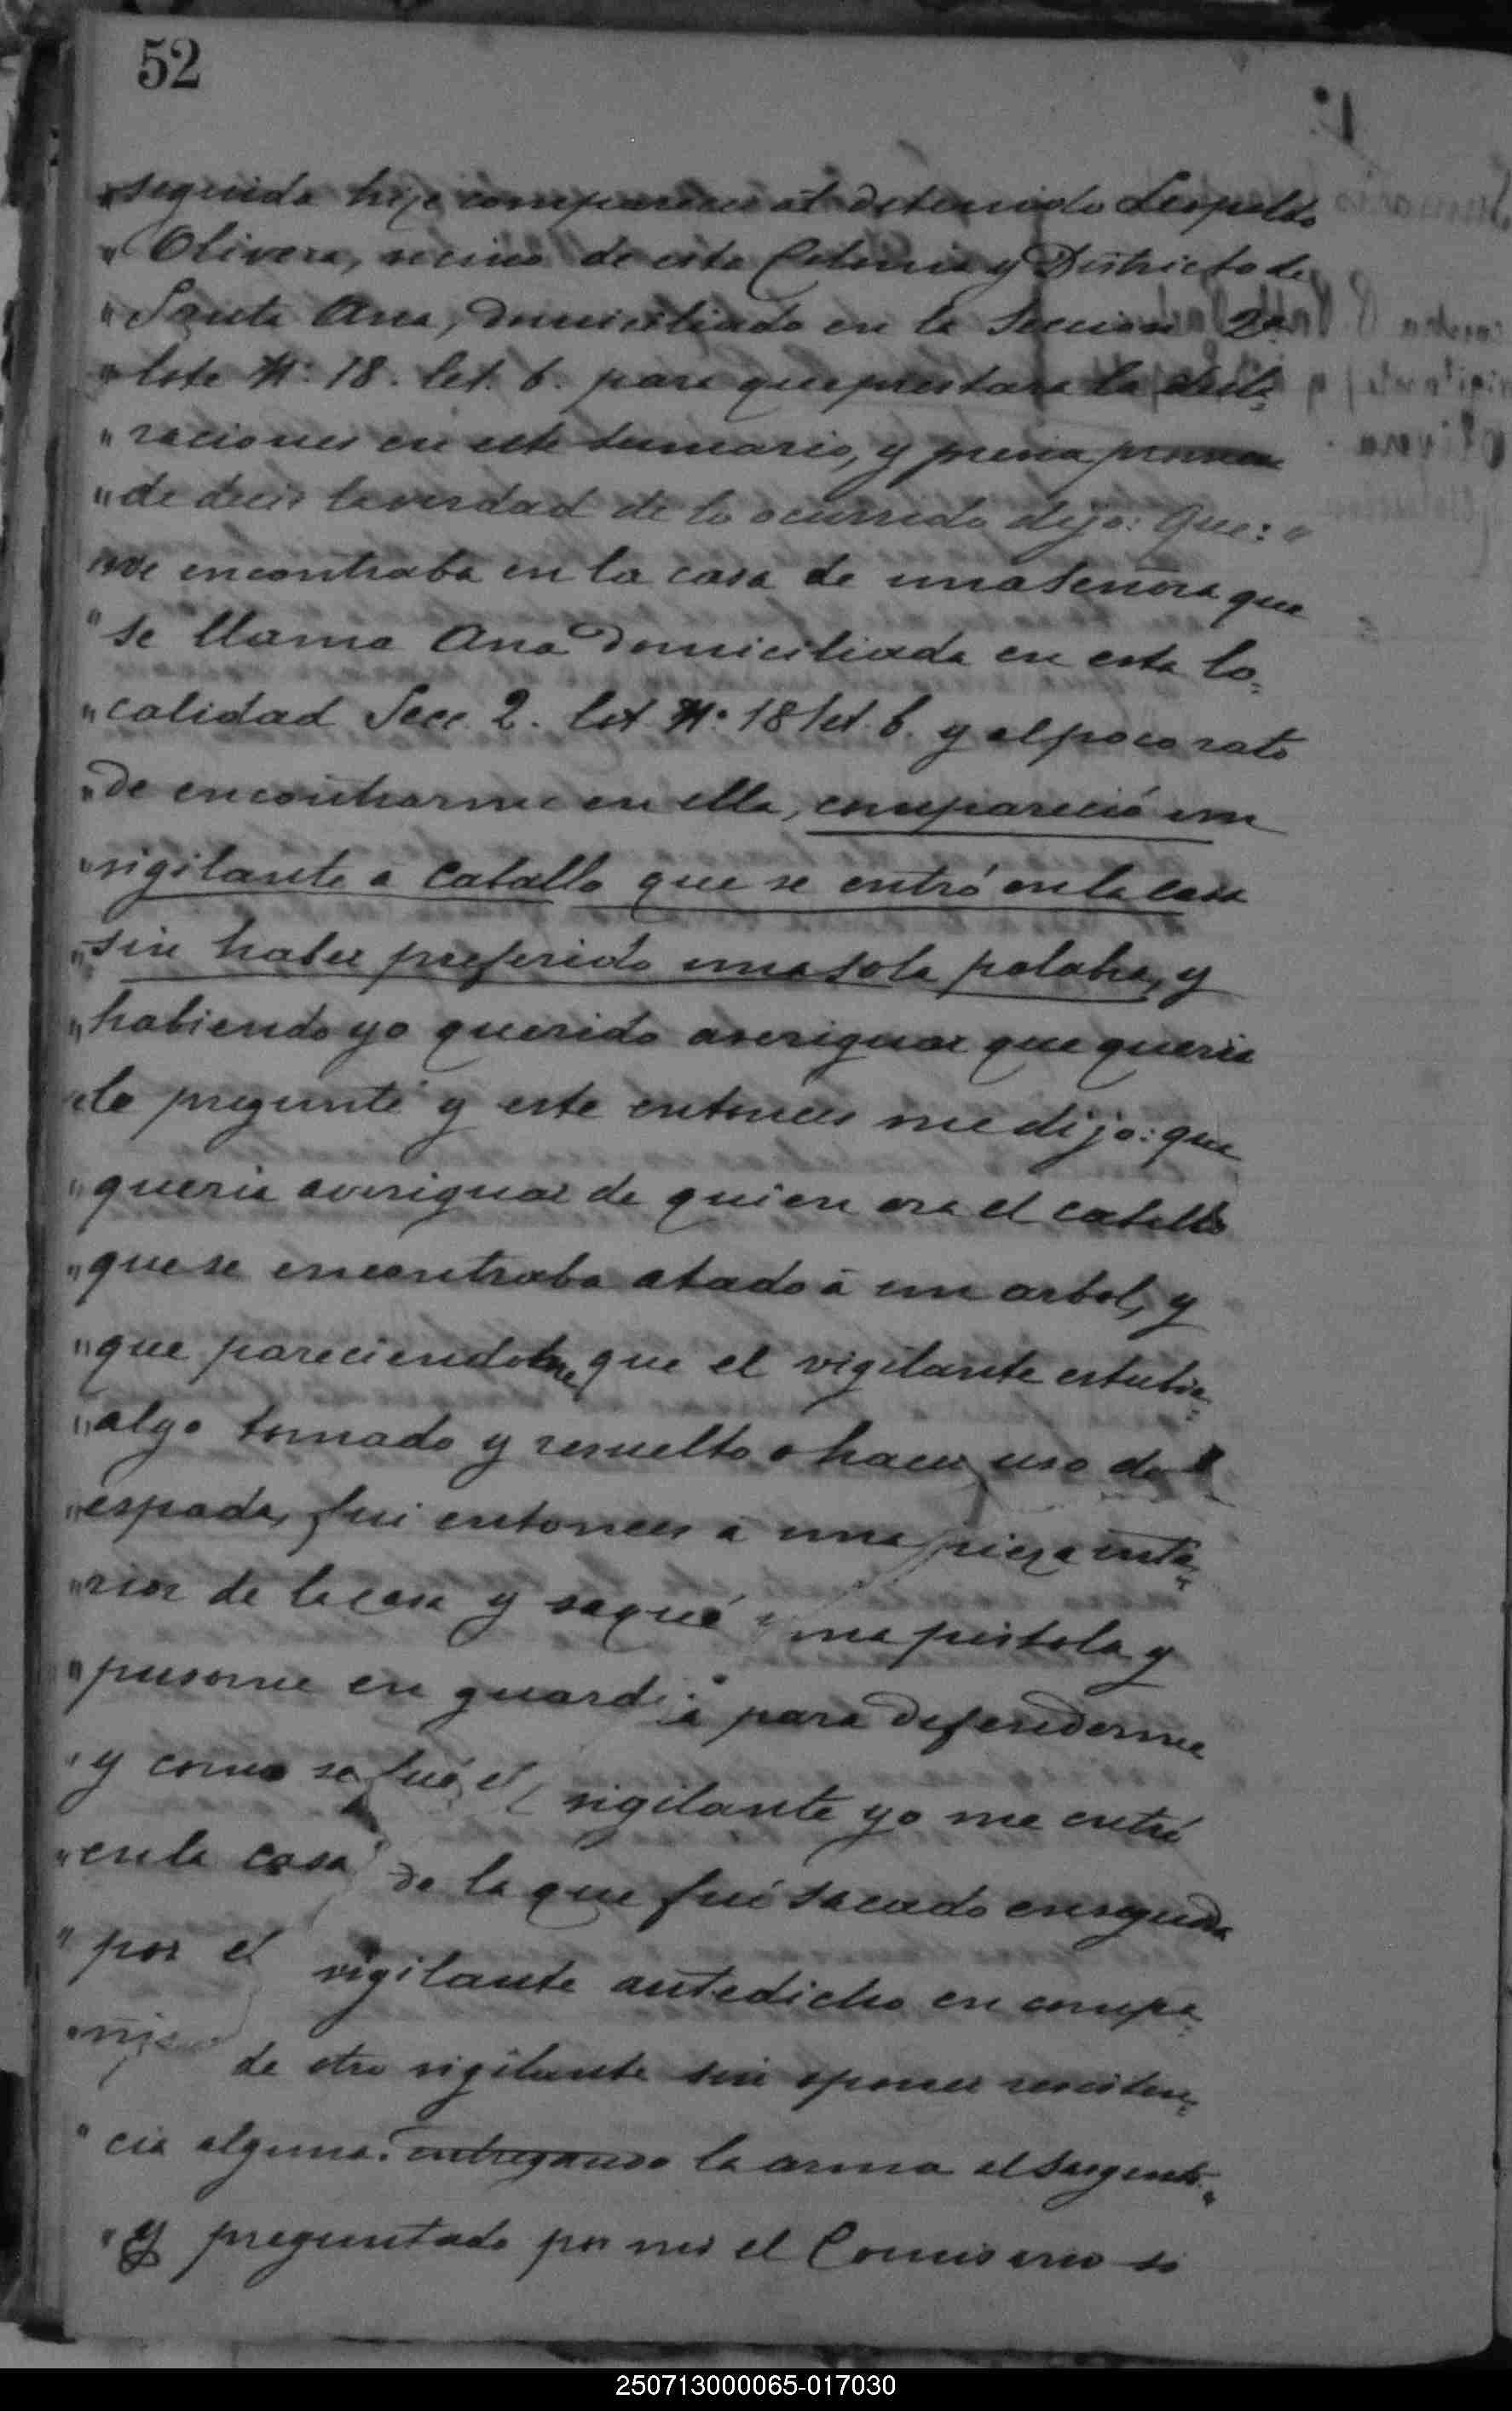 52
"seguida hize comparecer al detenido Leopoldo
" Olivera, vecino de esta Colonia y Districto de
" Santa Ana, domiciliado en la Seccion 2ª
" lote Nº 18. let. b. para que prestara la decla=
" raciones en este sumario, y previa promesa
" de decir la verdad de lo ocurrido dijo: Que: "
" se encontraba en la casa de una Señora que
" se llama Ana domiciliada en esta lo=
" calidad Secc. 2. lot Nº 18 let. b. y al poco rato
" de encontrarme en ella, compareció un
" vigilante a caballo que se entró en la casa
" sin haber preferido una sola palabra, y
" habiendo yo querido averiguar que queria
" le pregunté y este entonces me dijo: que
" queria averiguar de quien era el caballo
" que se encontraba atado á un arbol, y
" que pareciendome que el vigilante estubie=
" algo tomado y resuelto a hacer uso de
" espada, fui entonces á una pieza inte=
" rior de la casa y saqué una pistola y
" pusome en guardia para defenderme
" y como se fué el vigilante yo me entré
" en la casa de la que fué sacado enseguida
" por el vigilante antedicho en compa=
" ñia de otro vigilante sin oponer resisten=
" cia alguna. entregando la arma al Sargento. "
" Y preguntado por mi el Comisario si
250713000065-017030